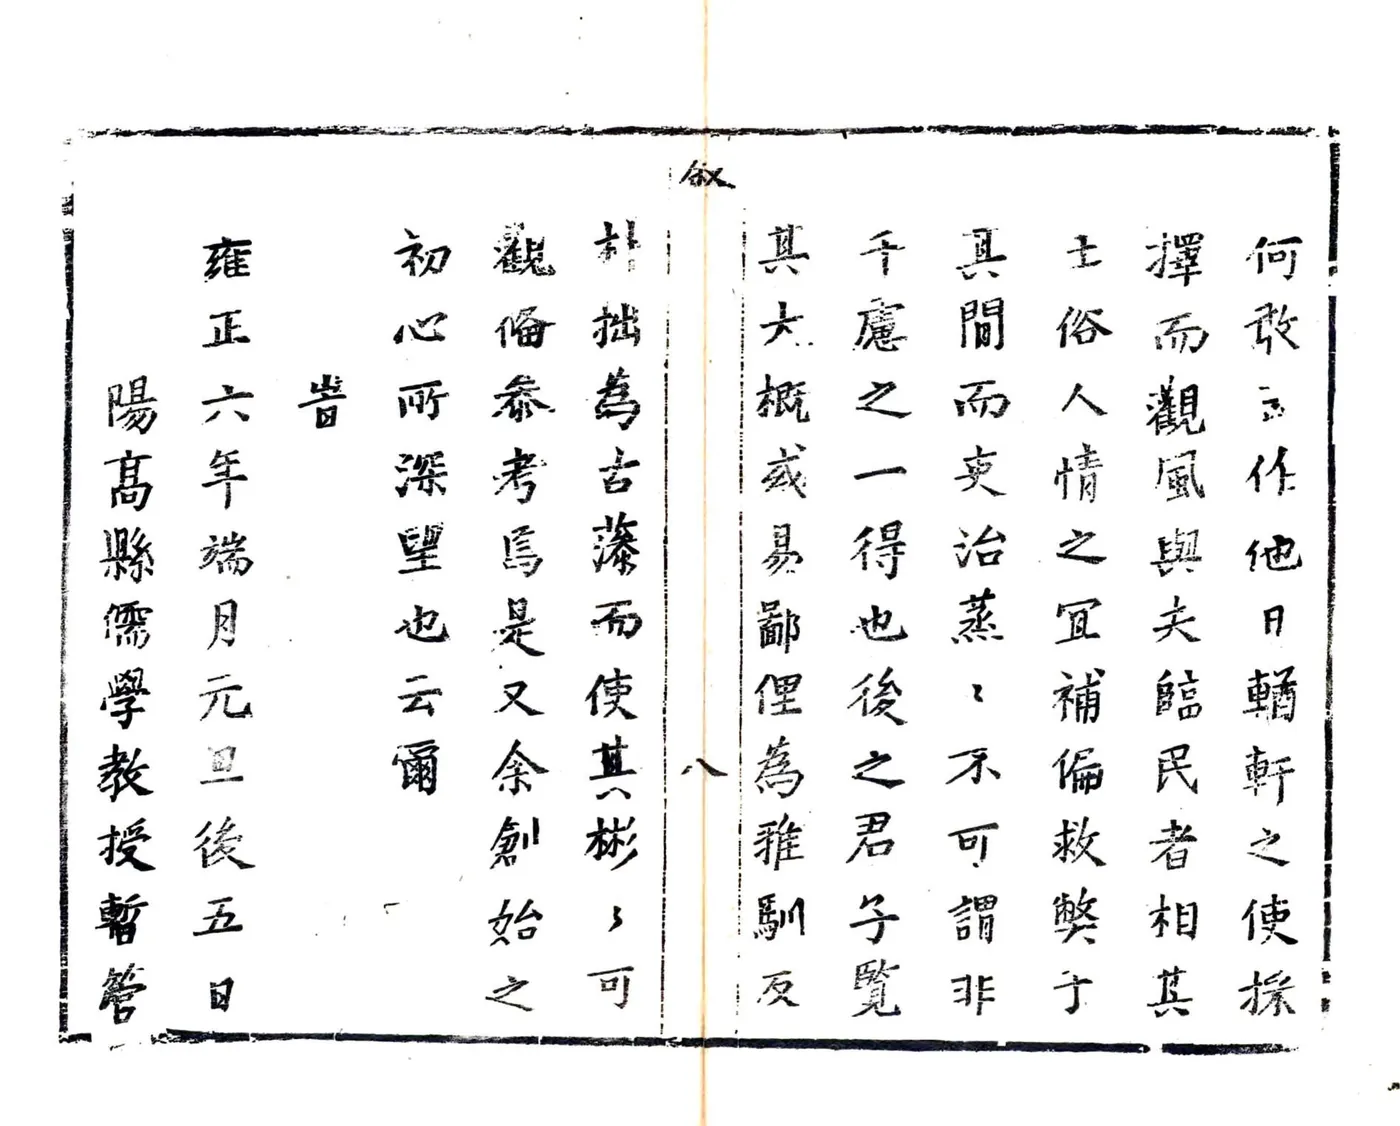 何敢言作他日輶軒之使採
擇而觀風與夫臨民者相其
士俗人情之宜補偏救弊于
其間而吏治蒸〻不可謂非
千慮之一得也後之君子覽
其大概或易鄙俚為雅馴反
叙
八
朴拙為古藻而使其彬〻可
觀偹叅考焉是又余創始之
初心所深望也云爾
旹
雍正六年端月元旦後五日
陽高縣儒學教授暫管